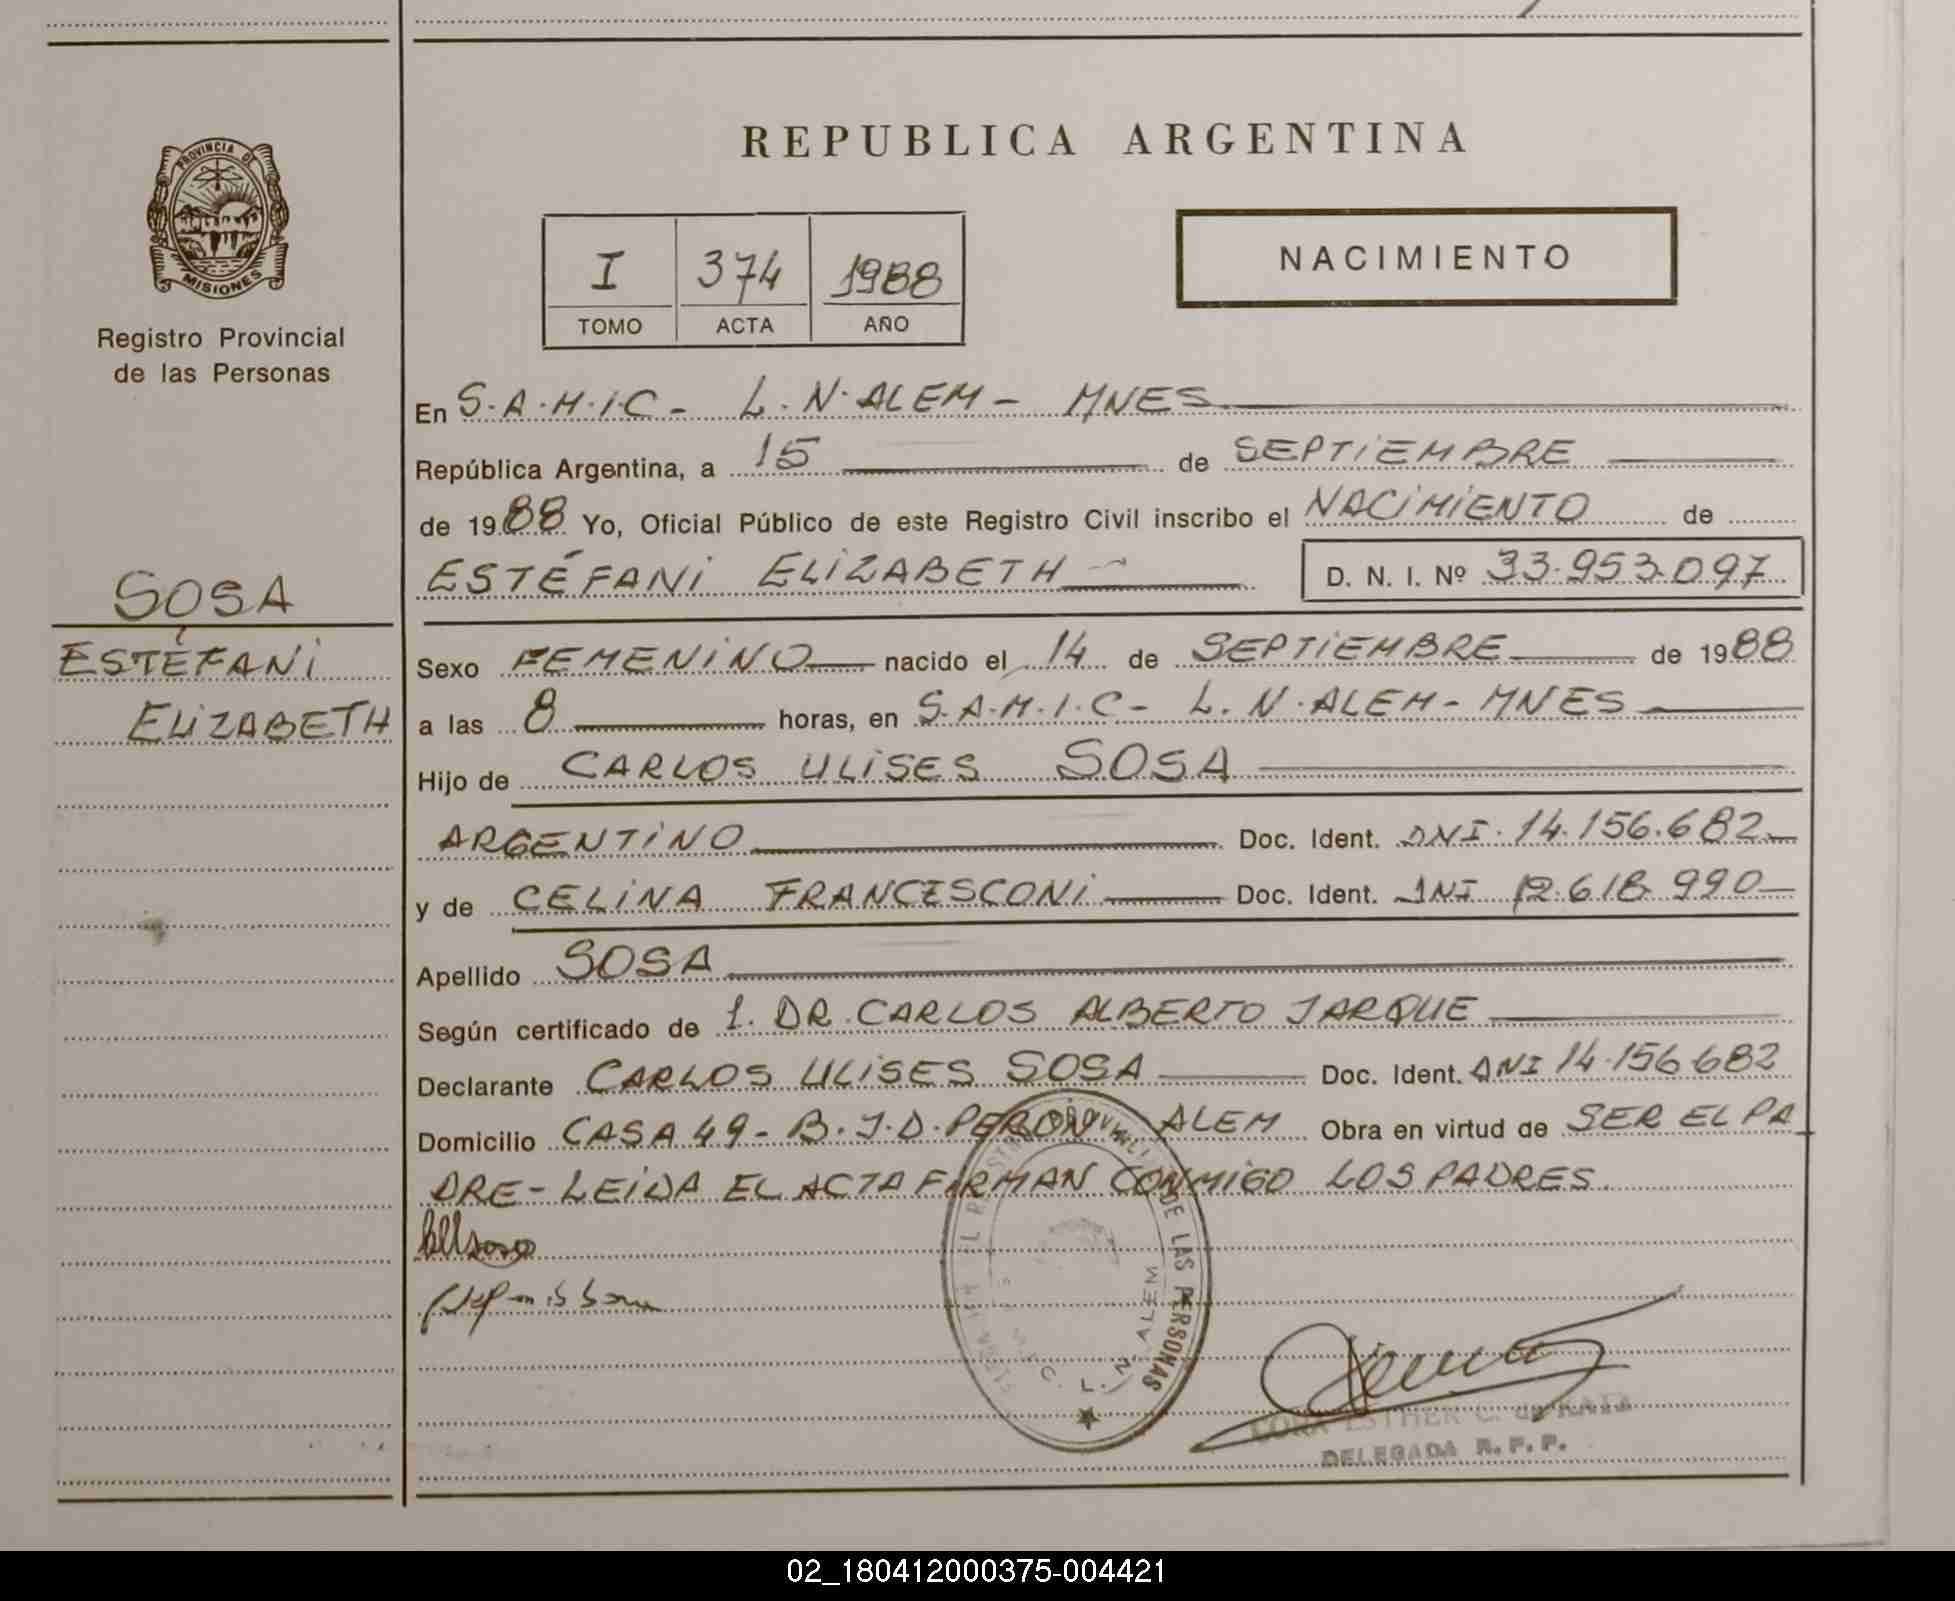 REPUBLICA ARGENTINA
PROVINCIA DE
MISIONES
Registro Provincial
de las Personas
I 374 1988
TOMO ACTA AÑO
NACIMIENTO
SOSA
ESTÉFANI
ELIZABETH
En S.A.M.I.C- L.N.ALEM- MNES
República Argentina, a 15 de SEPTIEMBRE
de 1988 Yo, Oficial Público de este Registro Civil inscribo el NACIMIENTO de
ESTÉFANI ELIZABETH D. N. I. Nº 33.953.097
Sexo FEMENINO nacido el 14 de SEPTIEMBRE de 1988
a las 8 horas, en S.A.M.I.C- L.N.ALEM-MNES
Hijo de CARLOS ULISES SOSA
ARGENTINO Doc. Ident. DNI.14.156.682
y de CELINA FRANCESCONI Doc. Ident. DNI 12.618.990
Apellido SOSA
Según certificado de 1. DR.CARLOS ALBERTO JARQUE
Declarante CARLOS ULISES SOSA Doc. Ident. DNI 14.156.682
Domicilio CASA 49- B.J.D.PERON ALEM Obra en virtud de SER EL PA
DRE-LEIDA EL ACTA FIRMAN CONMIGO LOS PADRES.
DE LAS PERSONAS
L.N.ALEM
ESTHER C. de
DELEGADA R.P.P.
02_180412000375-004421